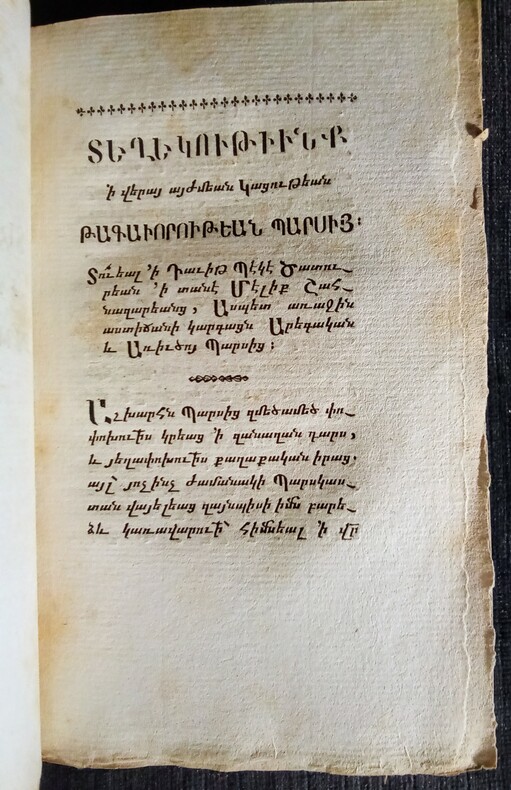 ՏԵՂԵԿՈՒԹԻՒՆՔ
՚ի վերայ այժմեան Կացութեան
ԹԱԳԱՒՈՐՈՒԹԵԱՆ ՊԱՐՍԻՑ։
Տուեալ ՚ի Դաւիթ Պէկէ Ծատու֊
րեան ՚ի տանէ Մէլիք Շահ֊
նազարեանց, Ասպետ առաջին
աստիճանի կարգացն Արեգական
և Առիւծոյ Պարսից։
Աշխարհն Պարսից զմեծամեծ փո֊
փոխումս կրեաց ՚ի զանազան դարս,
և յեղափոխումս քաղաքական իրաց.
այլ յոչ ինչ ժամանակի Պարսկաս֊
տան վայելեաց զայնպիսի իմն բարե֊
ձև կառավարումն՝ հիմնեալ ՚ի վր